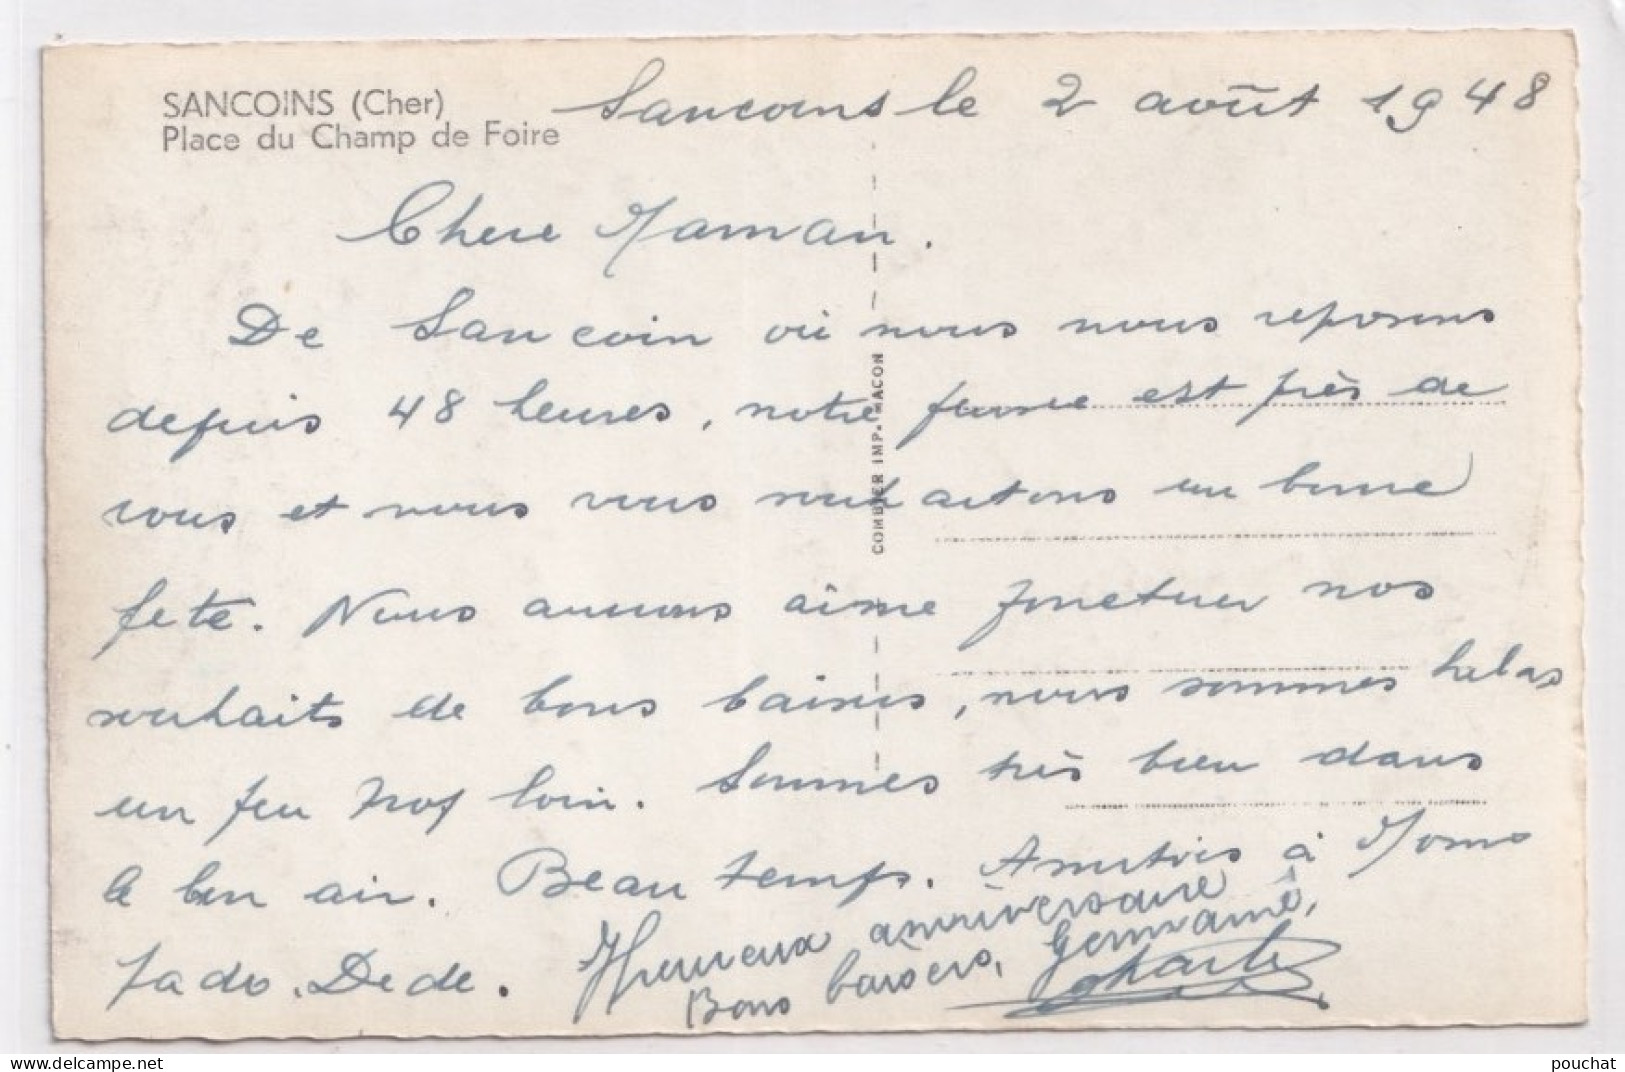 SANCOINS (Cher)
Place du Champ de Foire
Sancoins le 2 août 1948
Chere Maman.
De Sancoin où nous nous reposons
depuis 48 heures, notre pensée est près de
vous et nous vous souhaitons un bonne
fete. Nous aurions aimé ponctuer nos
souhaits de bons baisers, nous sommes helas
un peu trop loin. Sommes très bien dans
le bon air. Beau temps. Amitiés à Mons
Jado. Dede.
Heureux anniversaire
Bons baisers, Germaine,
Charles
COMBIER IMP. MACON
pouchat
https://www.delcampe.net